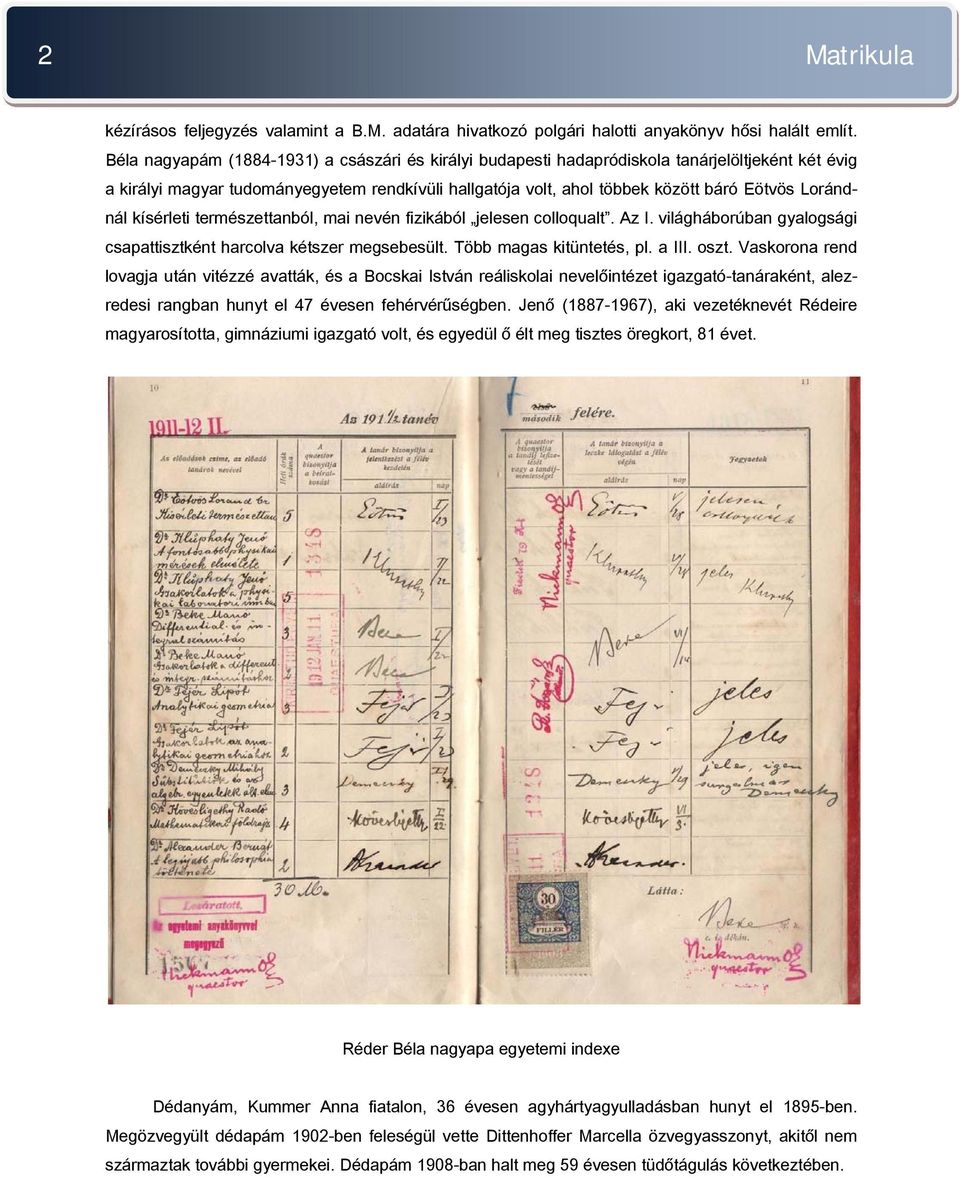 2 Matrikula
kézírásos feljegyzés valamint a B.M. adatára hivatkozó polgári halotti anyakönyv hősi halált említ.
Béla nagyapám (1884-1931) a császári és királyi budapesti hadapródiskola tanárjelöltjeként két évig
a királyi magyar tudományegyetem rendkívüli hallgatója volt, ahol többek között báró Eötvös Loránd-
nál kísérleti természettanból, mai nevén fizikából „jelesen colloqualt”. Az I. világháborúban gyalogsági
csapattisztként harcolva kétszer megsebesült. Több magas kitüntetés, pl. a III. oszt. Vaskorona rend
lovagja után vitézzé avatták, és a Bocskai István reáliskolai nevelőintézet igazgató-tanáraként, alez-
redesi rangban hunyt el 47 évesen fehérvérűségben. Jenő (1887-1967), aki vezetéknevét Rédeire
magyarosította, gimnáziumi igazgató volt, és egyedül ő élt meg tisztes öregkort, 81 évet.
10
1911-12 II.
Az 191 1/2 tanév
Az előadások címe, az előadó
tanárok nevével
Heti órák
száma
A
quaestor
bizonyítja
a beírat-
kozást
A tanár bizonyítja a
jelentkezést a félév
kezdetén
aláírás nap
Dr Eötvös Loránd br.
Kisérleti természettan 5 Eötvös I/23
Dr Klupathy Jenő
A fontosabb physikai
mérések elmélete 1 Klupathy
Dr Klupathy Jenő
Gyakorlatok a physi-
kai laboratoriumban 5
Dr Beke Manó
Differential- és in-
tegralszámitás 3 Beke I/22
Dr Beke Manó
Gyakorlatok a different
és integr. számitáshoz 2 Beke
Dr Fejér Lipót
Analytikai geometria 3 Fejér I/23
Dr Fejér Lipót
Gyakorlatok az ana-
lytikai geometriához 2 Fejér I/23
Dr Demeczky Mihály
algebr. egyenletek ált. elm. 3 Demeczky
Dr Kövesligethy Radó
Mathematikai földrajz 4 Kövesligethy I/22
Dr Alexander Bernát
A legújabb philosophia
története 2 Alexander
30
1348
1912 JAN. 11
QUAESTURA
Lezáratott.
Az egyetemi anyakönyvvel
megegyező
Nickmann
quaestor
11
második felére.
A quaestor
bizonyítja
a tandíj lefize-
tését
vagy a tandíj-
mentességet
A tanár bizonyítja a
leczke látogatást a félév
végén
aláírás nap
Jegyzetek
Eötvös V/28 jelesen
colloquált
Klupathy jeles
Klupathy
Beke VI/14
Fejér jeles
Fejér jeles
Demeczky V/29 jeles, igen
szorgalmas
Demeczky
Kövesligethy VI/3.
Alexander
Nickmann
quaestor
1348
30
FILLÉR
Látta:
Beke
e. i. dékán.
Nickmann
quaestor
Réder Béla nagyapa egyetemi indexe
Dédanyám, Kummer Anna fiatalon, 36 évesen agyhártyagyulladásban hunyt el 1895-ben.
Megözvegyült dédapám 1902-ben feleségül vette Dittenhoffer Marcella özvegyasszonyt, akitől nem
származtak további gyermekei. Dédapám 1908-ban halt meg 59 évesen tüdőtágulás következtében.